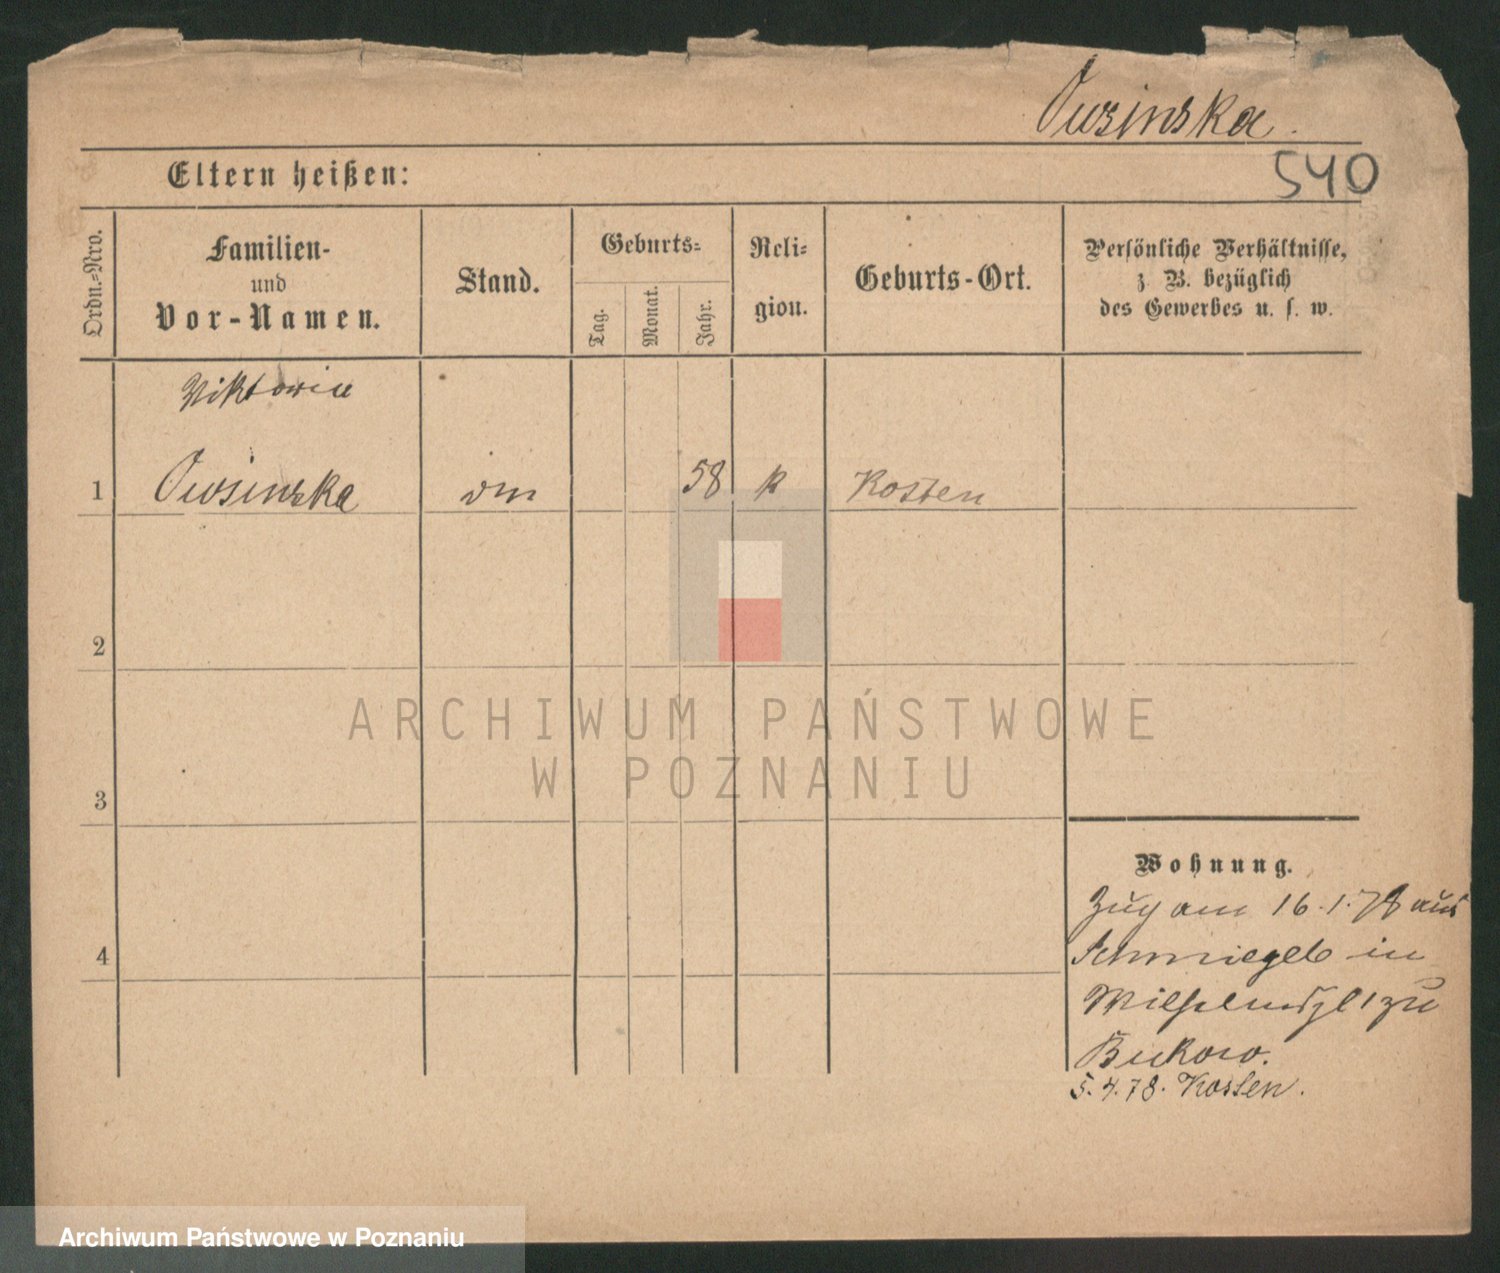 Owsinska.
540
Eltern heißen:
Ordn.-Nro.
Familien-
und
Vor-Namen.
Stand.
Geburts-
Tag.
Monat.
Jahr.
Reli-
gion.
Geburts-Ort.
Persönliche Verhältnisse,
z. B. bezüglich
des Gewerbes u. s. w.
Viktoria
1 Owsinska 58 k Kosten
2
3
4
Wohnung.
Zug am 16.1.78 aus
Schmiegel in
zu
Bukow.
5.4.78. Kosten.
ARCHIWUM PAŃSTWOWE
W POZNANIU
Archiwum Państwowe w Poznaniu